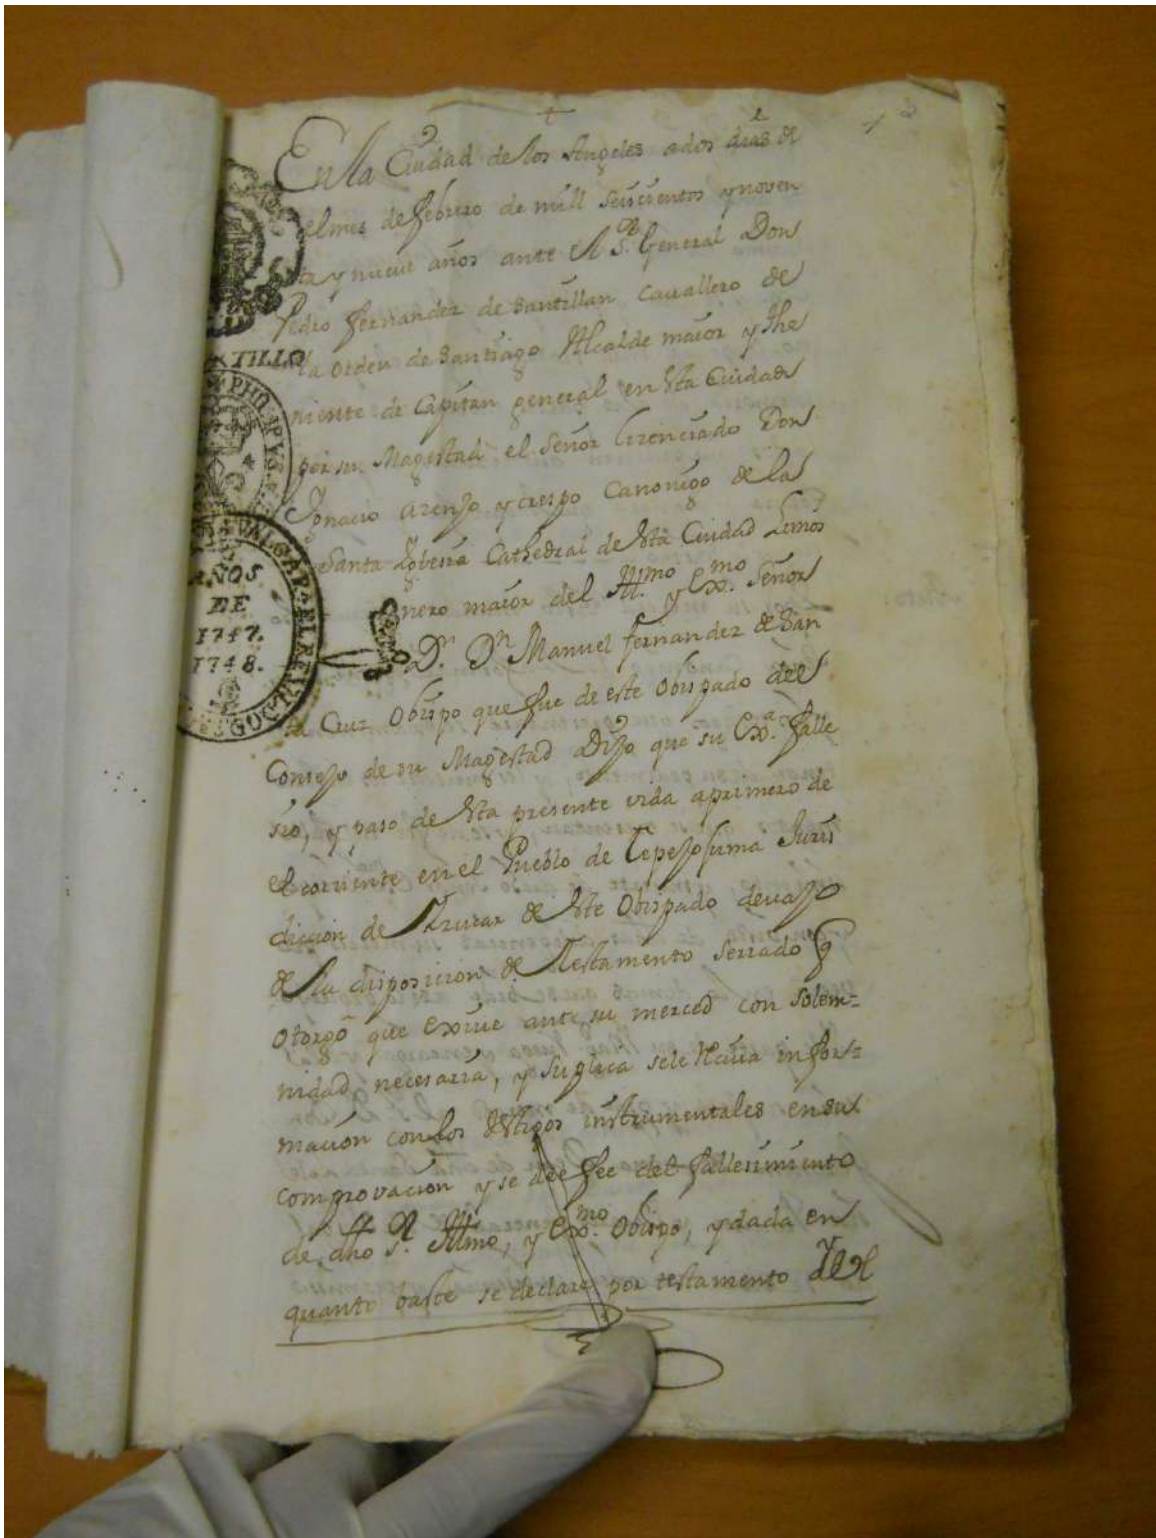 En la Ciudad de los Angeles a dos dias de
el mes de febrero de mill seiscientos y noven
ta y nueve años ante el S.r General Don
Pedro fernandez de Santillan Cavallero de
la orden de Santiago Alcalde maior y the
niente de Capitan general en esta Ciudad
por su Magestad el señor licenciado Don
Ignacio Asenjo y crespo Canonigo de la
Santa Iglesia Cathedral de esta Ciudad Limos
nero maior del Ill.mo y Ex.mo Señor
D.r D.n Manuel fernandez de San
ta Cruz Obispo que fue de este Obispado del
Consejo de su Magestad Dijo que su Ex.a falle
sio, y paso de esta presente vida a primero de
el corriente en el Pueblo de Tepejojuma Juris
diccion de Izucar de este Obispado devajo
de la disposicion de testamento serrado q
otorgô que exive ante su merced con solem=
nidad necesaria, y suplica se le reciva infor=
macion con los testigos instrumentales en su
comprovacion y se dee fee del fallesimiento
de dho S.r Illmo, y Ex.mo Obispo, y dada en
quanto baste se declare por testamento
TILLO
AÑOS
DE
1747.
1748.